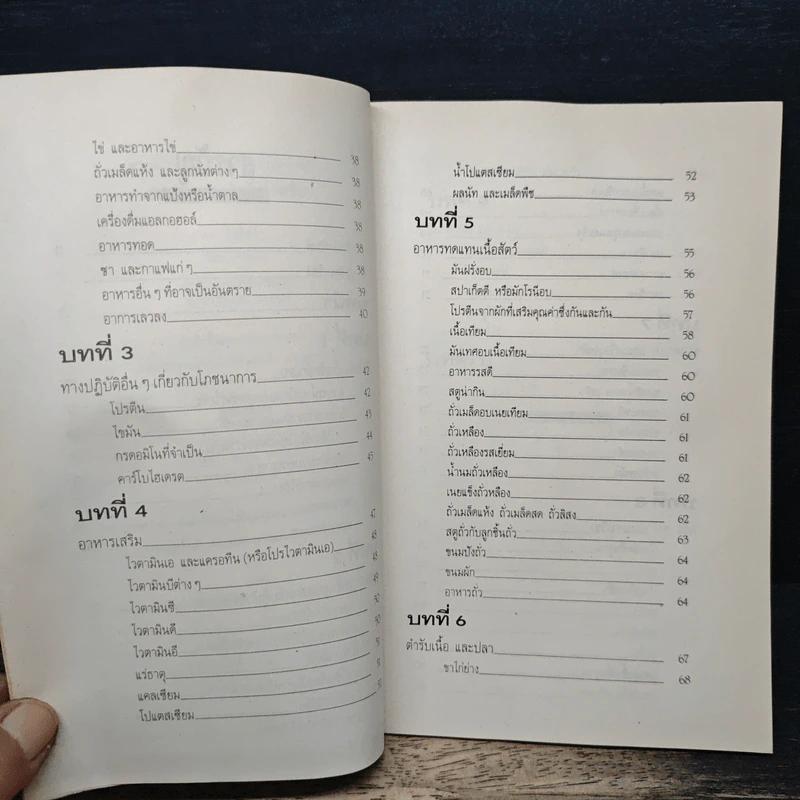 ไข่ และอาหารไข่ 38
ถั่วเมล็ดแห้ง และลูกนัทต่างๆ 38
อาหารทำจากแป้งหรือน้ำตาล 38
เครื่องดื่มแอลกอฮอล์ 38
อาหารทอด 38
ชา และกาแฟแก่ๆ 38
อาหารอื่น ๆ ที่อาจเป็นอันตราย 39
อาการเลวลง 40
บทที่ 3
ทางปฏิบัติอื่น ๆ เกี่ยวกับโภชนาการ 42
โปรตีน 42
ไขมัน 43
กรดอมิโนที่จำเป็น 44
คาร์โบไฮเดรต 45
บทที่ 4
อาหารเสริม 47
ไวตามินเอ และแครอทีน (หรือโปรไวตามินเอ) 48
ไวตามินบีต่าง ๆ 49
ไวตามินซี
ไวตามินดี
ไวตามินอี
แร่ธาตุ
แคลเซียม
โปแตสเซียม
น้ำโปแตสเซียม 52
ผลนัท และเมล็ดพืช 53
บทที่ 5
อาหารทดแทนเนื้อสัตว์ 55
มันฝรั่งอบ 56
สปาเก็ตตี หรือมักโรนีอบ 56
โปรตีนจากผักที่เสริมคุณค่าซึ่งกันและกัน 57
เนื้อเทียม 58
มันเทศอบเนื้อเทียม 60
อาหารรสดี 60
สตูน่ากิน 60
ถั่วเมล็ดอบเนยเทียม 61
ถั่วเหลือง 61
ถั่วเหลืองรสเยี่ยม 61
น้ำนมถั่วเหลือง 62
เนยแข็งถั่วเหลือง 62
ถั่วเมล็ดแห้ง ถั่วเมล็ดสด ถั่วลิสง 62
สตูถั่วกับลูกชิ้นถั่ว 63
ขนมปังถั่ว 64
ขนมผัก 64
อาหารถั่ว 64
บทที่ 6
ตำรับเนื้อ และปลา 67
ขาไก่ย่าง 68